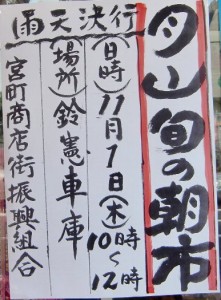 月山旬の朝市
雨天決行
(日時)11月1日(木)
10時〜12時
(場所)鈴憲車庫
宮町商店街振興組合